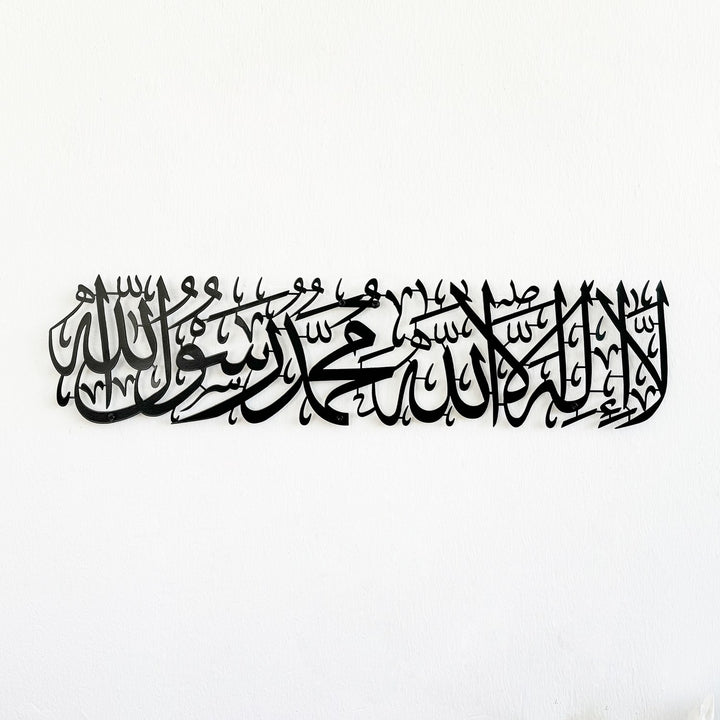 لَا إِلَهَ إِلَّا اللّٰهُ مُحَمَّدٌ رَسُولُ اللّٰهِ